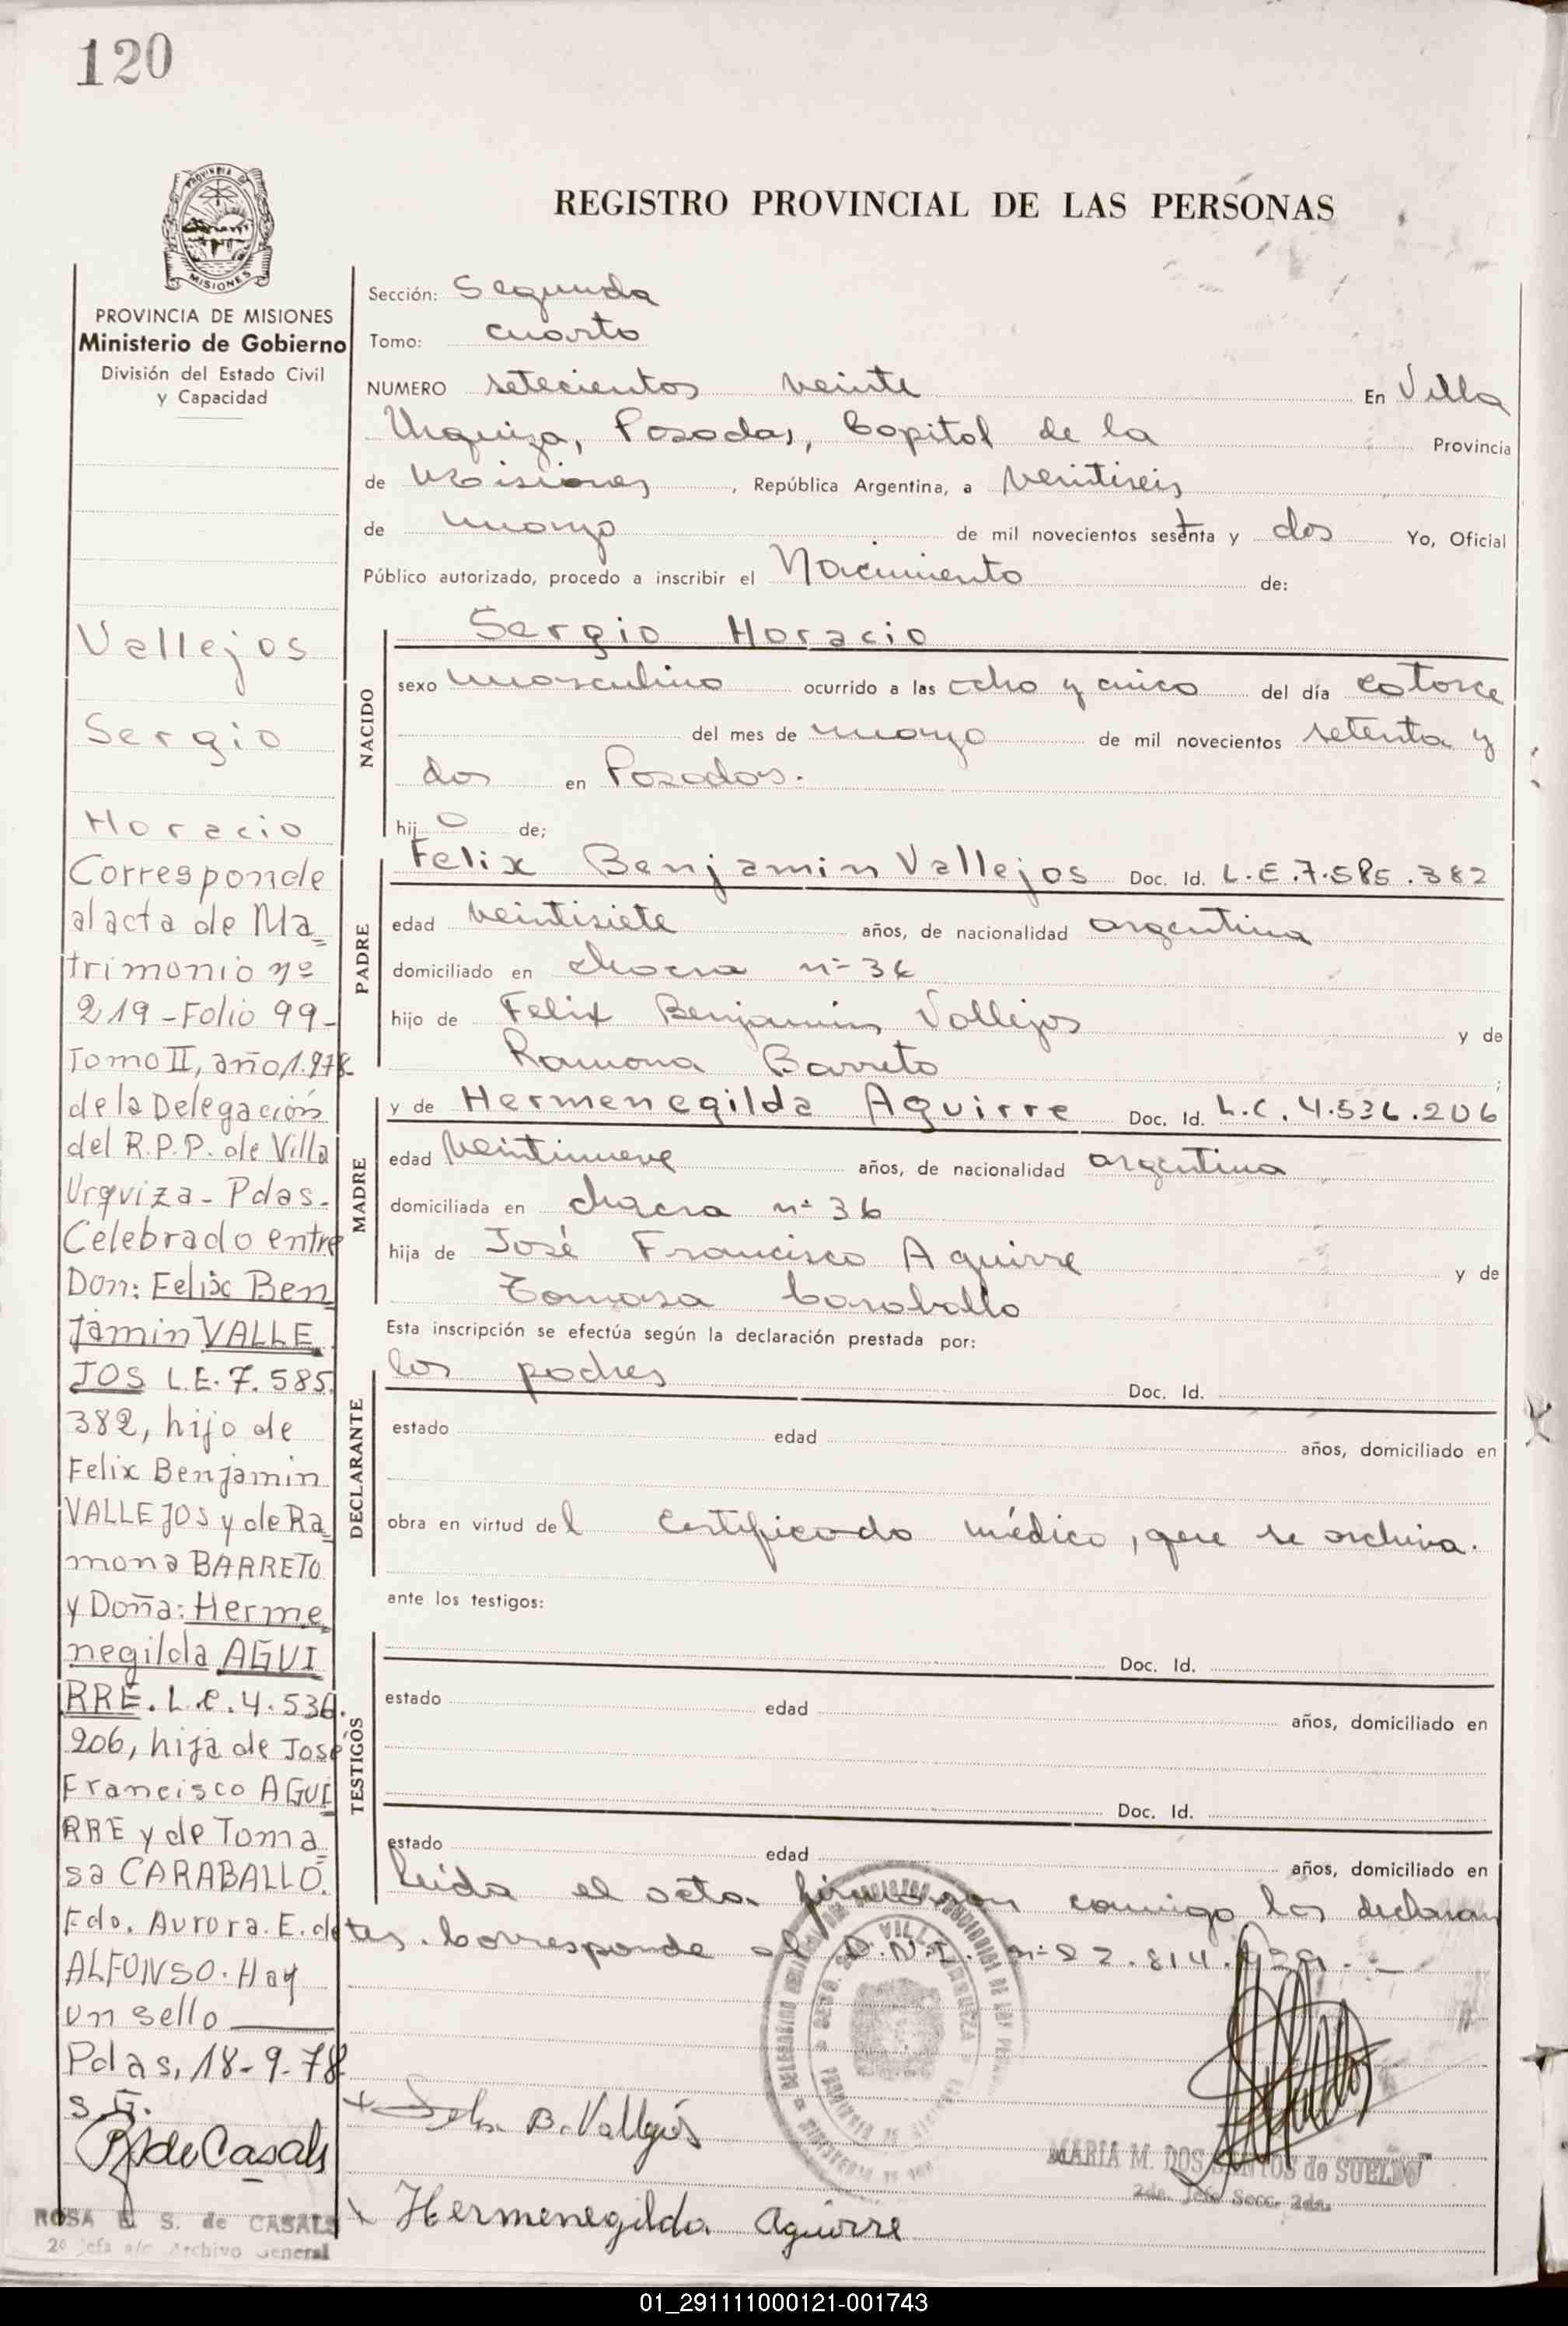 120
REGISTRO PROVINCIAL DE LAS PERSONAS
PROVINCIA DE MISIONES
Ministerio de Gobierno
División del Estado Civil
y Capacidad
Vallejos
Sergio
Horacio
Corresponde
al acta de Ma
trimonio nº
219 - Folio 99 -
Tomo II, año 1.978
de la Delegación
del R.P.P. de Villa
Urquiza - Pdas.
Celebrado entre
Don: Felix Ben
jamin VALLE
JOS L.E. 7.585.
382, hijo de
Felix Benjamin
VALLEJOS y de Ra
mona BARRETO
y Doña: Herme
negilda AGUI
RRE. L.C. 4.536.
206, hija de José
Francisco AGUI
RRE y de Toma
sa CARABALLO.
Fdo. Aurora. E. de
ALFONSO. Hay
un sello
Pdas, 18-9-78
S.G.
de Casals
ROSA E. S. de CASALS
2º Jefa a/c Archivo General
Sección: Segunda
Tomo: cuarto
NUMERO setecientos veinte En Villa
Urquiza, Posadas, Capital de la Provincia
de Misiones, República Argentina, a veintiseis
de marzo de mil novecientos sesenta y dos Yo, Oficial
Público autorizado, procedo a inscribir el Nacimiento de:
Sergio Horacio
NACIDO
sexo masculino ocurrido a las ocho y cinco del día catorce
del mes de marzo de mil novecientos setenta y
dos en Posadas.
hijo de;
PADRE
Felix Benjamin Vallejos Doc. Id. L.E. 7.585.382
edad veintisiete años, de nacionalidad argentina
domiciliado en chacra nº 36
hijo de Felix Benjamin Vallejos y de
Ramona Barreto
MADRE
y de Hermenegilda Aguirre Doc. Id. L.C. 4.536.206
edad veintinueve años, de nacionalidad argentina
domiciliada en chacra nº 36
hija de José Francisco Aguirre y de
Tomasa Caraballo
Esta inscripción se efectúa según la declaración prestada por:
DECLARANTE
los padres Doc. Id.
estado edad años, domiciliado en
obra en virtud del certificado médico, que se archiva.
ante los testigos:
TESTIGOS
Doc. Id.
estado edad años, domiciliado en
Doc. Id.
estado edad años, domiciliado en
Leída el acta firmaron conmigo los declaran
tes. Corresponde al D.N.I. nº 22.814.
B. Vallejos
Hermenegilda Aguirre
MARIA M. DOS SANTOS de SUELDO
2da. Jefe Secc. 2da.
01_291111000121-001743